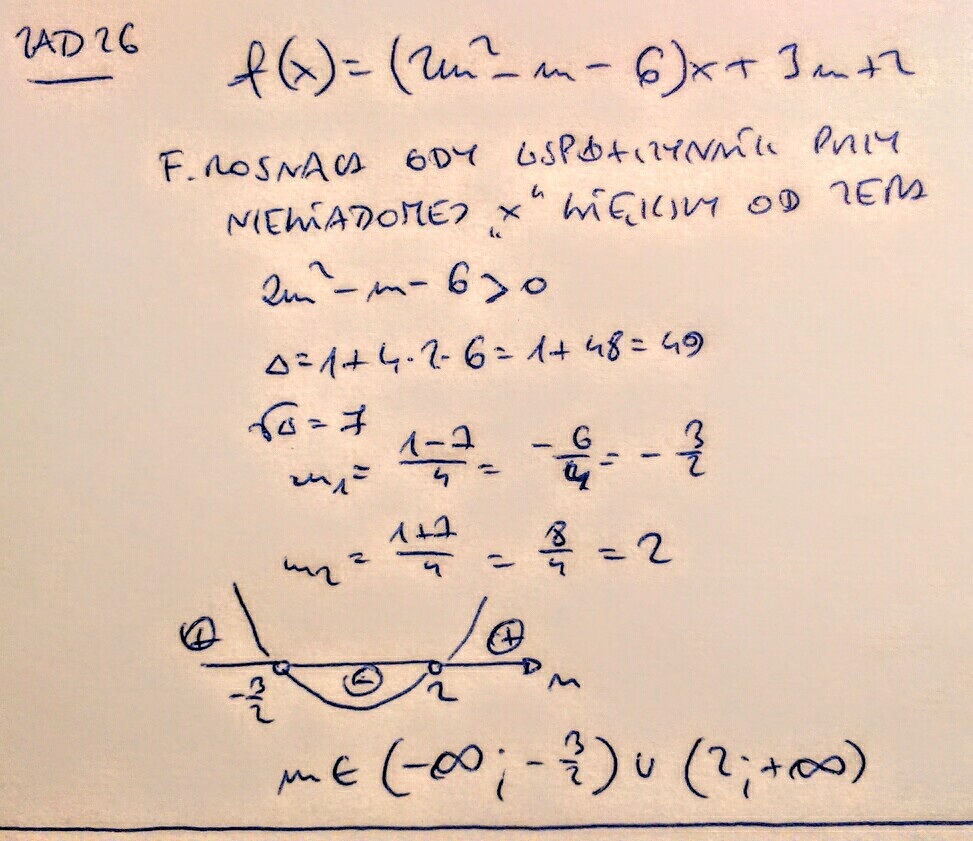 ZAD 26
f(x) = (2m² - m - 6)x + 3m + 2
F. ROSNĄCA GDY WSPÓŁCZYNNIK PRZY
NIEWIADOMEJ „x" WIĘKSZY OD ZERA
2m² - m - 6 > 0
Δ = 1 + 4·2·6 = 1 + 48 = 49
√Δ = 7
m₁ = (1-7)/4 = -6/4 = -3/2
m₂ = (1+7)/4 = 8/4 = 2
+ - +
-3/2 2 m
m ∈ (-∞; -3/2) ∪ (2; +∞)